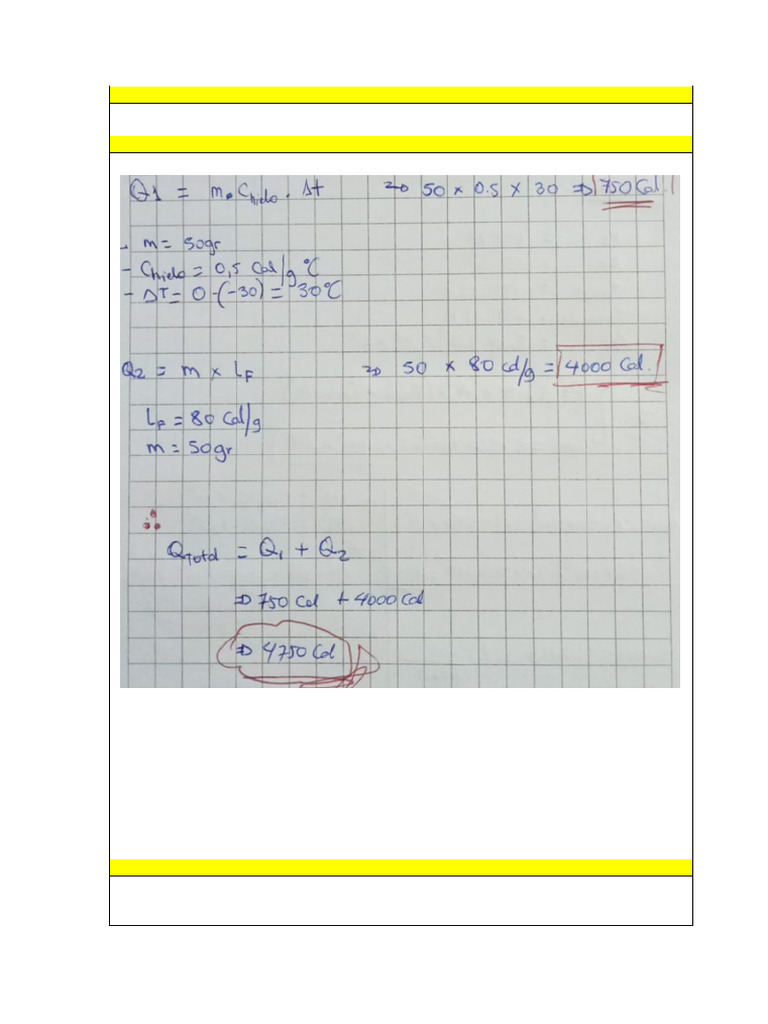 Q1 = m. Chielo . Δt ⇒ 50 x 0.5 x 30 ⇒ 750 Cal.
- m = 50gr
- Chielo = 0,5 Cal/g °C
- ΔT = 0 -(-30) = 30°C
Q2 = m x LF ⇒ 50 x 80 cal/g = 4000 Cal.
LF = 80 Cal/g
m = 50gr
∴
QTotal = Q1 + Q2
⇒ 750 Cal + 4000 Cal
⇒ 4750 Cal